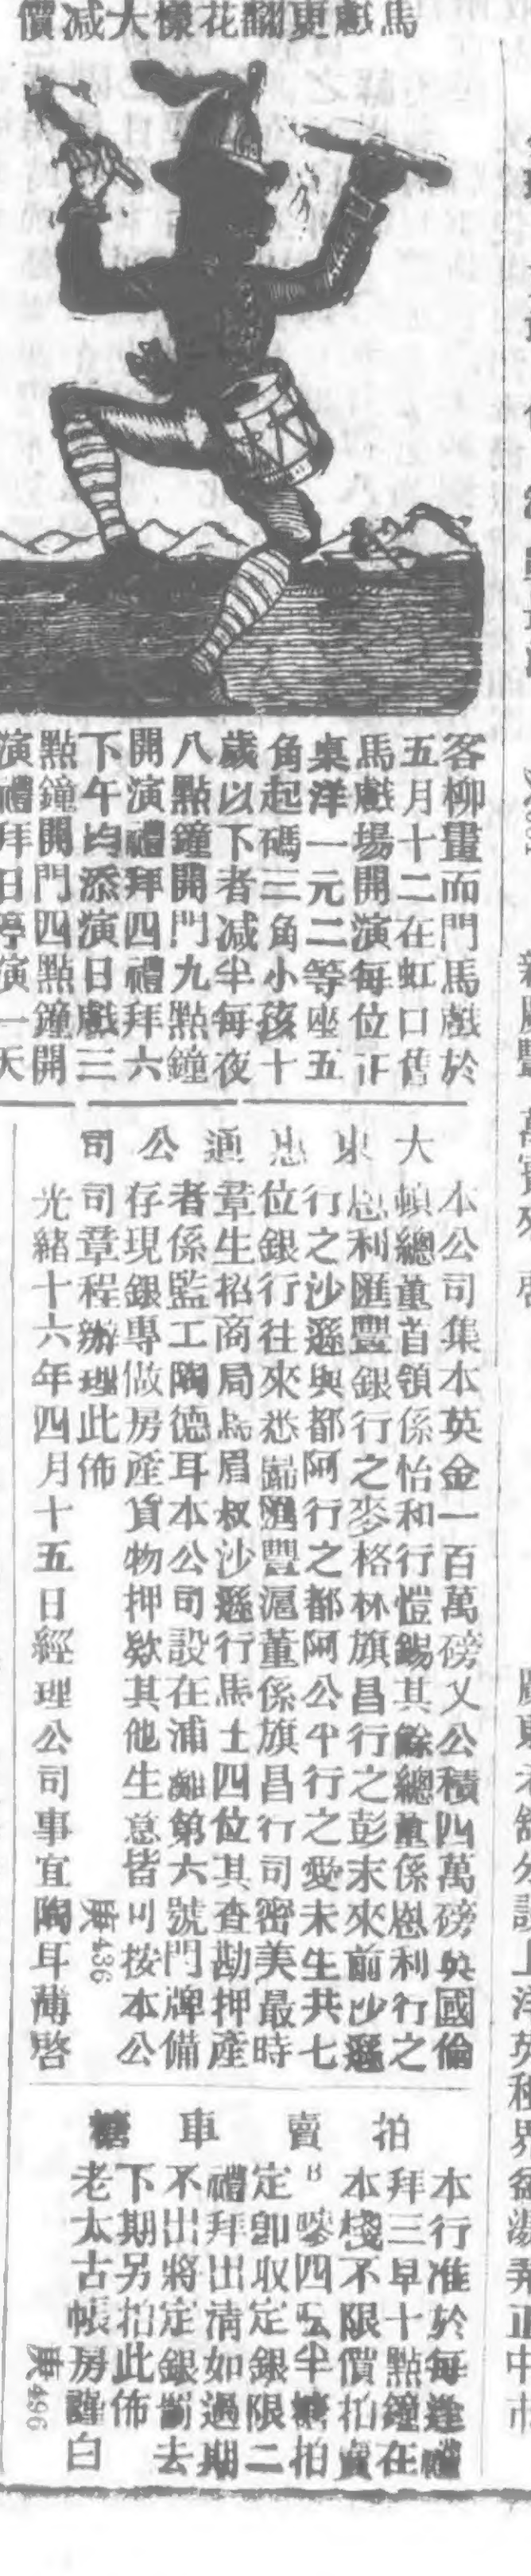 馬戲更翻花樣大減價
客柳畫而門馬戲於
五月十二在虹口舊
馬戲場開演每位正
桌洋一元二等座五
角起碼三角小孩十
歲以下者減半每夜
八點鐘開門九點鐘
開演禮拜四禮拜六
下午均添演日戲三
點鐘開門四點鐘開
演禮拜日停演一天
大東惠通公司
本公司集本英金一百萬磅又公積四萬磅英國倫
頓總董首領係怡和行愷錫其餘總董係恩利行之
恩利匯豐銀行之麥格林旗昌行之彭末來前沙遜
行之沙遜與都阿行之都阿公平行之愛末生共七
位銀行往來悉歸匯豐滬董係旗昌行司密美最時
章生招商局馬眉叔沙遜行馬士四位其查勘押產
者係監工陶德耳本公司設在浦灘第六號門牌備
存現銀專做房產貨物押欵其他生意皆可按本公
司章程辦理此佈
庚436
光緒十六年四月十五日經理公司事宜陶耳薄啓
拍賣車糖
本行准於每逢禮
拜三早十點鐘在
本棧不限價拍賣
B嘜四五半糖拍
定卽收定銀限二
禮拜出清如過期
不出將定銀罰去
下期另拍此佈
庚496
老太古帳房謹白